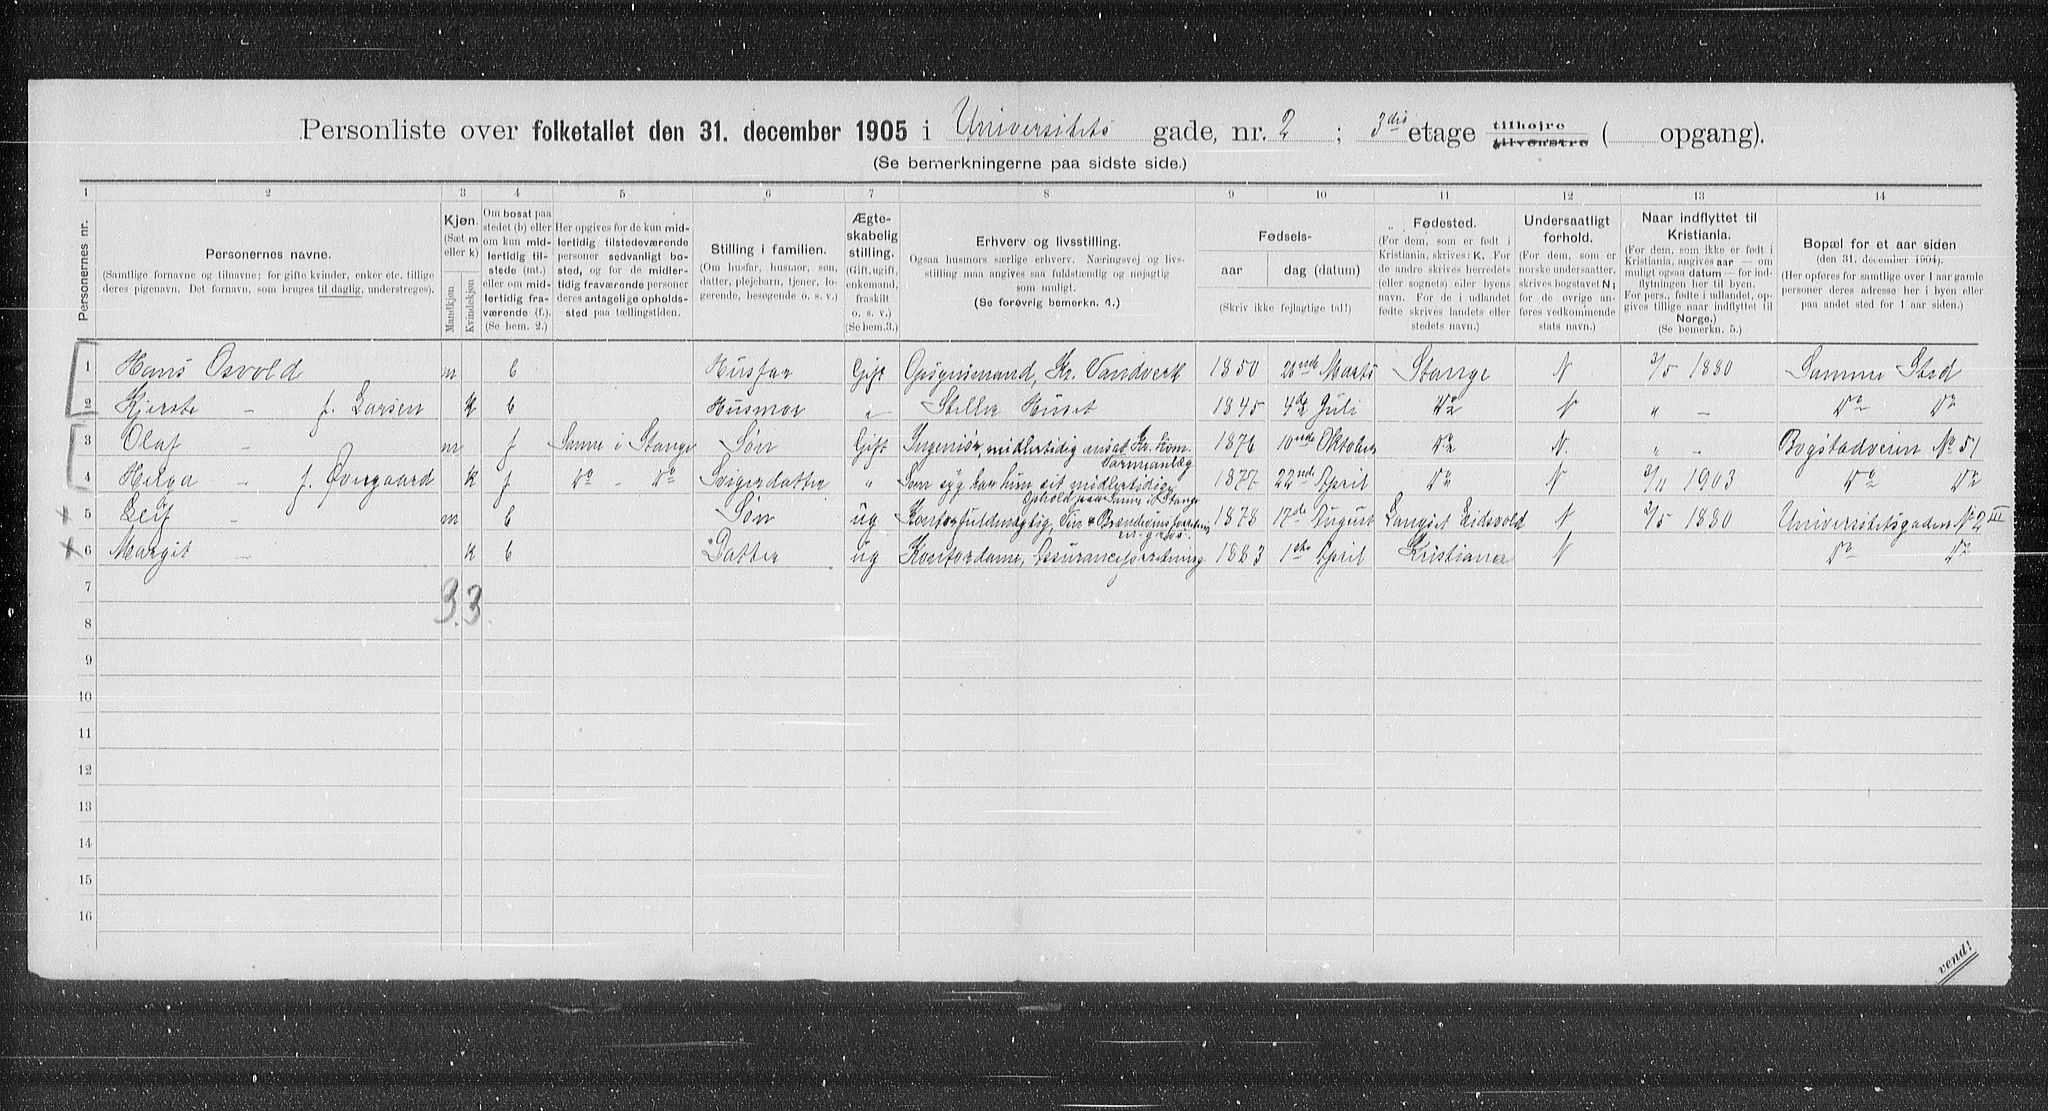 Personliste over folketallet den 31. december 1905 i Universitets gade, nr. 2 ; 3die etage tilhøjre tilvenstre ( opgang).
(Se bemerkningerne paa sidste side.)
1 2 3 4 5 6 7 8 9 10 11 12 13 14
Personernes nr.
Personernes navne.
(Samtlige fornavne og tilnavne; for gifte kvinder, enker etc. tillige
deres pigenavn. Det fornavn, som bruges til daglig, understreges).
Kjøn.
(Sæt m
eller k)
Mandkjøn
Kvindekjøn
Om bosat paa
stedet (b) eller
om kun mid-
lertidig til-
stede (mt.)
eller om mid-
lertidig fra-
værende (f.).
(Se bem. 2.)
Her opgives for de kun mid-
lertidig tilstedeværende
personer sedvanligt bo-
sted, og for de midler-
tidig fraværende personer
deres antagelige opholds-
sted paa tællingstiden.
Stilling i familien.
(Om husfar, husmor, søn,
datter, plejebarn, tjener, lo-
gerende, besøgende o. s. v.)
Ægte-
skabelig
stilling.
(Gift, ugift,
enkemand,
fraskilt
o. s. v.)
(Se bem. 3.)
Erhverv og livsstilling.
Ogsaa husmors særlige erhverv. Næringsvej og livs-
stilling maa angives saa fuldstændig og nøjagtig
som muligt.
(Se forøvrig bemerkn. 4.)
Fødsels-
aar dag (datum)
(Skriv ikke fejlagtige tal!)
Fødested.
(For dem, som er født i
Kristiania, skrives: K. For
de andre skrives herredets
(eller sognets) eller byens
navn. For de i udlandet
fødte skrives landets eller
stedets navn.)
Undersaatligt
forhold.
(For dem, som er
norske undersaatter,
skrives bogstavet N;
for de øvrige an-
føres vedkommende
stats navn.)
Naar indflyttet til
Kristiania.
(For dem, som ikke er født i
Kristiania, angives aar — om
muligt ogsaa datum — for ind-
flytningen her til byen.
For pers., fødte i udlandet, op-
gives tillige naar indflyttet til
Norge.)
(Se bemerkn. 5.)
Bopæl for et aar siden
(den 31. december 1904).
(Her opføres for samtlige over 1 aar gamle
personer deres adresse her i byen eller
paa andet sted for 1 aar siden.)
1 Hans Osvold m b Husfar Gift Opsynsmand, Kr. Vandverk 1850 26nde Marts Stange N 2/5 1880 Samme Sted
2 Kjersti - f. Larsen k b Husmor „ Steller Huset 1845 4de Juli Do N „ - Do Do
3 Olaf - m f Sanne i Stange Søn Gift Ingeniør, midlertidig ansat Kr. Kom. Varmeanlæg 1876 10nde Oktober Do N. „ - Bogstadveien No 51
4 Helga - f. Øvergaard k f Do - Do Svigerdatter „ Som syg har hun sit midlertidige Ophold paa Sanne i Stange 1877 22nde April Do N 2/11 1903 Do Do
5 Leif - m b Søn ug Kontorfuldmægtig, Vin & Brændevinsforretning en gros. 1878 17de August Langset Eidsvold N 2/5 1880 Universitetsgaden No 2 III
6 Margit - k b Datter ug Kontordame, Assuranceforretning 1883 1ste April Kristiania N Do Do
7
3.3.
8
9
10
11
12
13
14
15
16
vend!